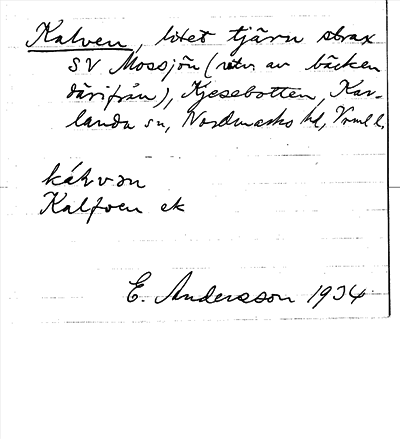 Kalven, litet tjärn strax
SV Mossjön (utv. av bäcken
därifrån), Kjesebotten, Kar-
landa sn, Nordmarks hd, Vrml l.
kálvən
Kalfven ek
E. Andersson 1934